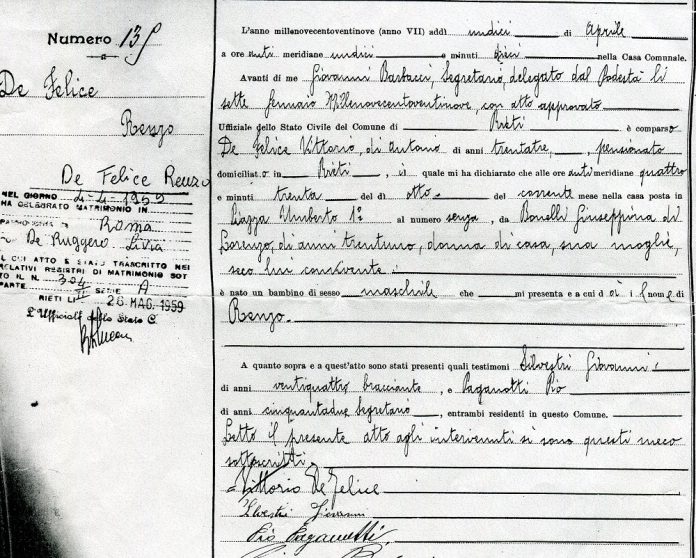 Numero 139
De Felice
Renzo
De Felice Renzo
NEL GIORNO 4-4-1959
HA CELEBRATO MATRIMONIO IN
Roma
De Ruggero Livia
IL CUI ATTO È STATO TRASCRITTO NEI
RELATIVI REGISTRI DI MATRIMONIO SOT
TO IL N. 304
PARTE II SERIE A
RIETI LI 28 MAG. 1959
L'Ufficiale dello Stato C.
L'anno millenovecentoventinove (anno VII) addì undici di Aprile
a ore anti meridiane undici e minuti dieci nella Casa Comunale.
Avanti di me Giovanni Barbacci, Segretario, delegato dal Podestà li
sette gennaio Millenovecentoventinove, con atto approvato
Uffiziale dello Stato Civile del Comune di Rieti è comparso
De Felice Vittorio, di Antonio di anni trentatre, pensionato
domiciliato in Rieti, il quale mi ha dichiarato che alle ore antimeridiane quattro
e minuti trenta del dì otto del corrente mese nella casa posta in
Piazza Umberto 1º al numero senza, da Bonelli Giuseppina di
Lorenzo, di anni trentuno, donna di casa, sua moglie,
seco lui convivente.
è nato un bambino di sesso maschile che mi presenta e a cui dà il nome di
Renzo.
A quanto sopra e a quest'atto sono stati presenti quali testimoni Silvestri Giovanni
di anni ventiquattro bracciante, e Paganotti Pio
di anni cinquantadue Segretario, entrambi residenti in questo Comune.
Letto il presente atto agli intervenuti si sono questi meco
sottoscritti.
Vittorio De Felice
Silvestri Giovanni
Pio Paganotti